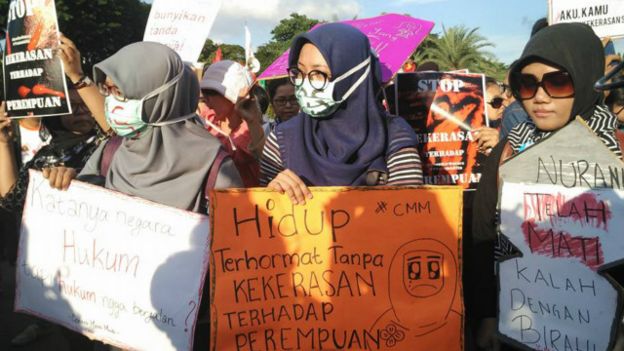 STOP
KEKERASAN
TERHADAP
PEREMPUAN
bunyikan
tanda
AKU.KAMU
STOP
KEKERASA
TERHADAP
PEREMPUAN
Katanya negara
Hukum
hukum ngga berjalan?
Hidup #CMM
Terhormat Tanpa
KEKERASAN
TERHADAP
PEREMPUAN
NURANI
TELAH
MATI
KALAH
DENGAN
BIRAHI